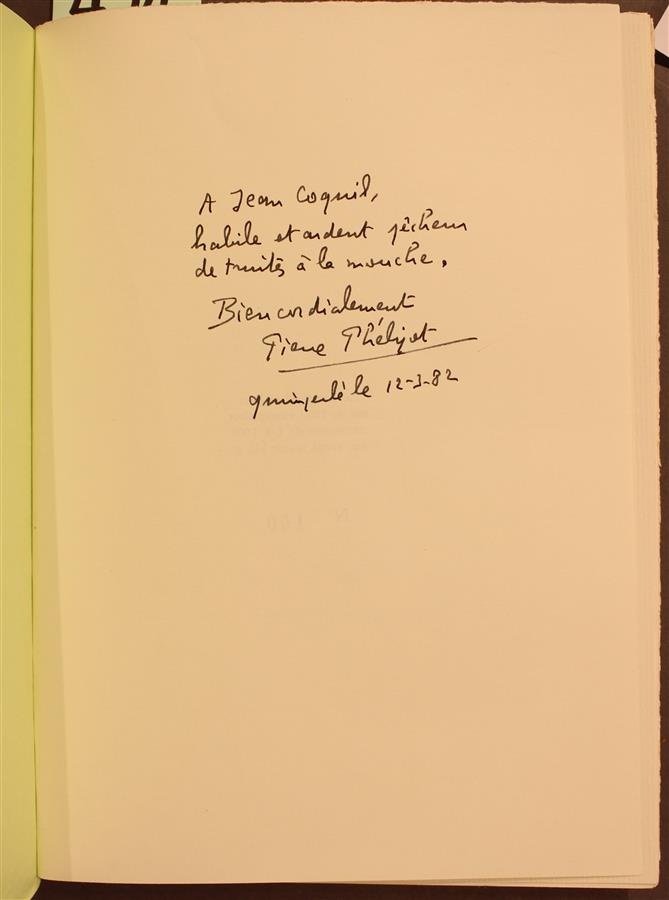 A Jean Coquil,
habile et ardent pêcheur
de truites à la mouche.
Bien cordialement
Pierre Phélipot
Quimperlé le 12-3-82
N° 100